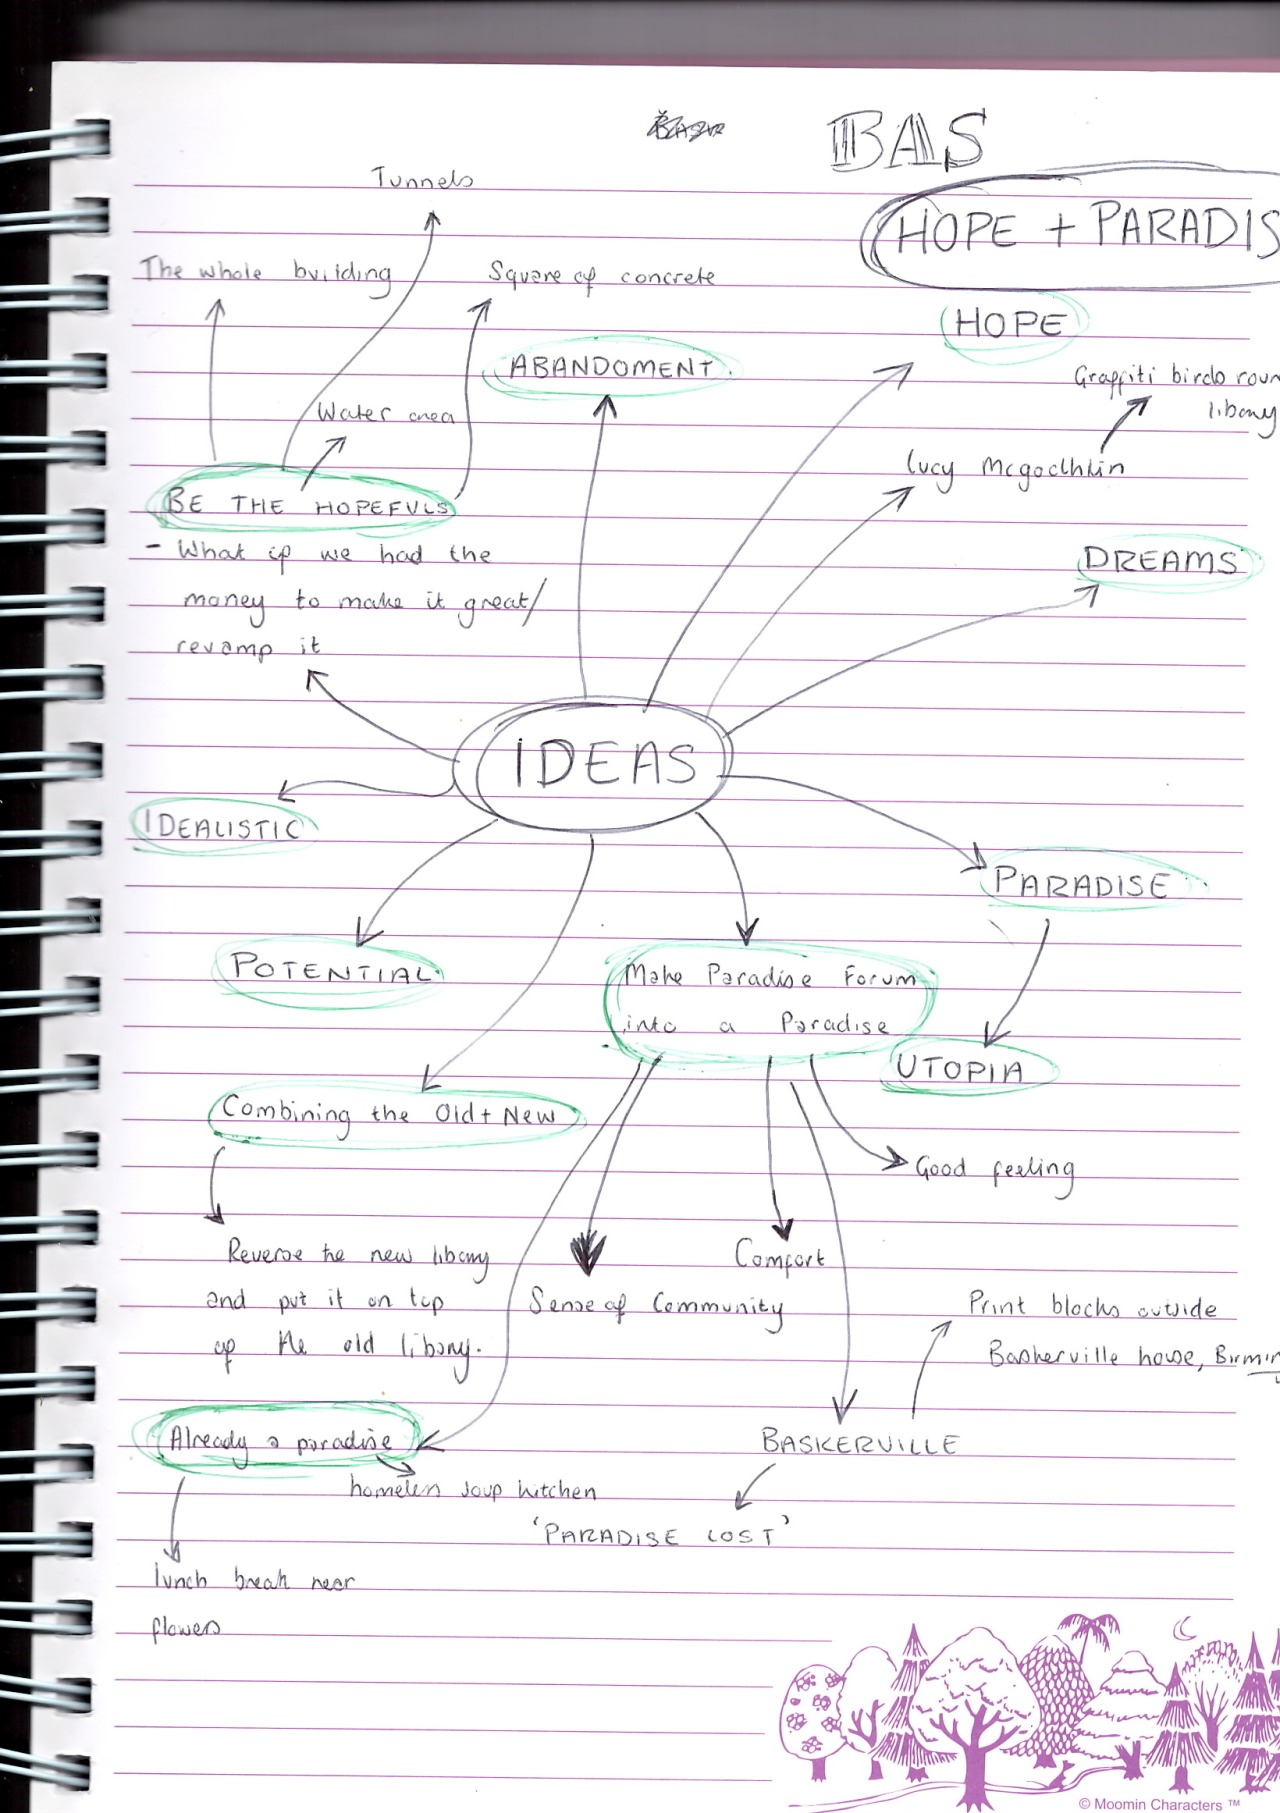 BAS
Tunnels
HOPE + PARADIS
The whole building
Square of concrete
HOPE
ABANDOMENT.
Graffiti birds roun
libary
Water area
Lucy Mcgoclhlin
BE THE HOPEFULS
- What if we had the
money to make it great/
revamp it
DREAMS
IDEAS
IDEALISTIC
PARADISE
POTENTIAL
Make Paradise Forum
into a Paradise
UTOPIA
Combining the Old + New
Good feeling
Reverse the new libary
and put it on top
of the old libary.
Comfort
Sense of Community
Print blocks outside
Baskerville house, Birmin
Already a paradise
BASKERVILLE
homeless soup kitchen
'PARADISE LOST'
lunch break near
flowers
© Moomin Characters ™